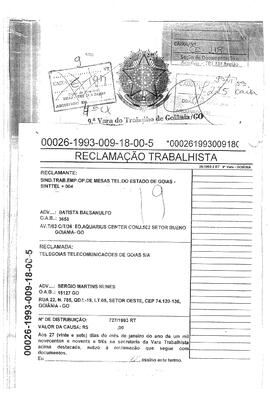 9
CAIXA/SI
9.ª Vara do Trabalho de Goiânia/GO
00026-1993-009-18-00-5
*00026199300918(
RECLAMAÇÃO TRABALHISTA
RECLAMANTE:
SIND.TRAB.EMP.OP.DE MESAS TEL.DO ESTADO DE GOIAS -
SINTTEL + 004
9
ADV...: BATISTA BALSANULFO
O.A.B.: 3658
AV.T/63 C/T/36 ED.AQUARIUS CENTER CONJ.502 SETOR BUENO
GOIANIA- GO
RECLAMADA:
TELEGOIAS TELECOMUNICACOES DE GOIAS S/A
ADV...: SERGIO MARTINS NUNES
O.A.B.: 15127 GO
RUA 22, N. 785, QD.I-19, LT.69, SETOR OESTE, CEP 74.120-130,
GOIÂNIA - GO
Nº DE DISTRIBUIÇÃO: 727/1993 RT
VALOR DA CAUSA: R$ ,00
Aos 27 (vinte e sete) dias do mês de janeiro do ano de um mil
novecentos e noventa e três na secretaria da Vara Trabalhista
acima destacada, autuo a reclamação que segue com
documentos.
Eu, assino este termo.
00026-1993-009-18-00-5